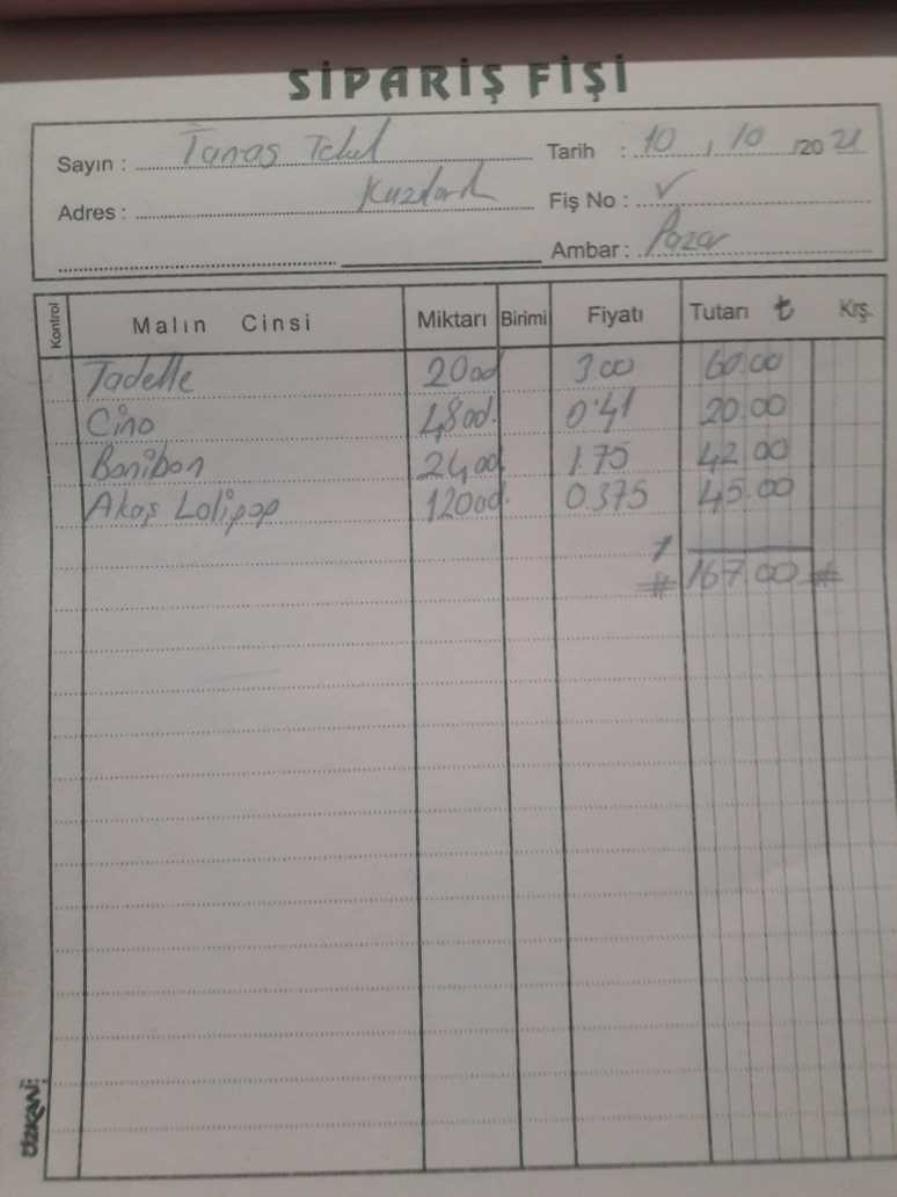 SİPARİŞ FİŞİ
Sayın : Tanaş Tekel Tarih : 10 / 10 /2021
Adres : Fiş No : ✓
Ambar : Pazar
Kontrol Malın Cinsi Miktarı Birimi Fiyatı Tutarı ₺ Krş.
Tadelle 20 ad 3.00 60.00
Cino 48 ad. 0.41 20.00
Bonibon 24 ad 1.75 42.00
Akaş Lolipop 120 ad. 0.375 45.00
# 167.00 #